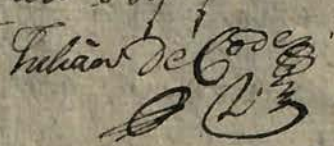 Julián de Codes